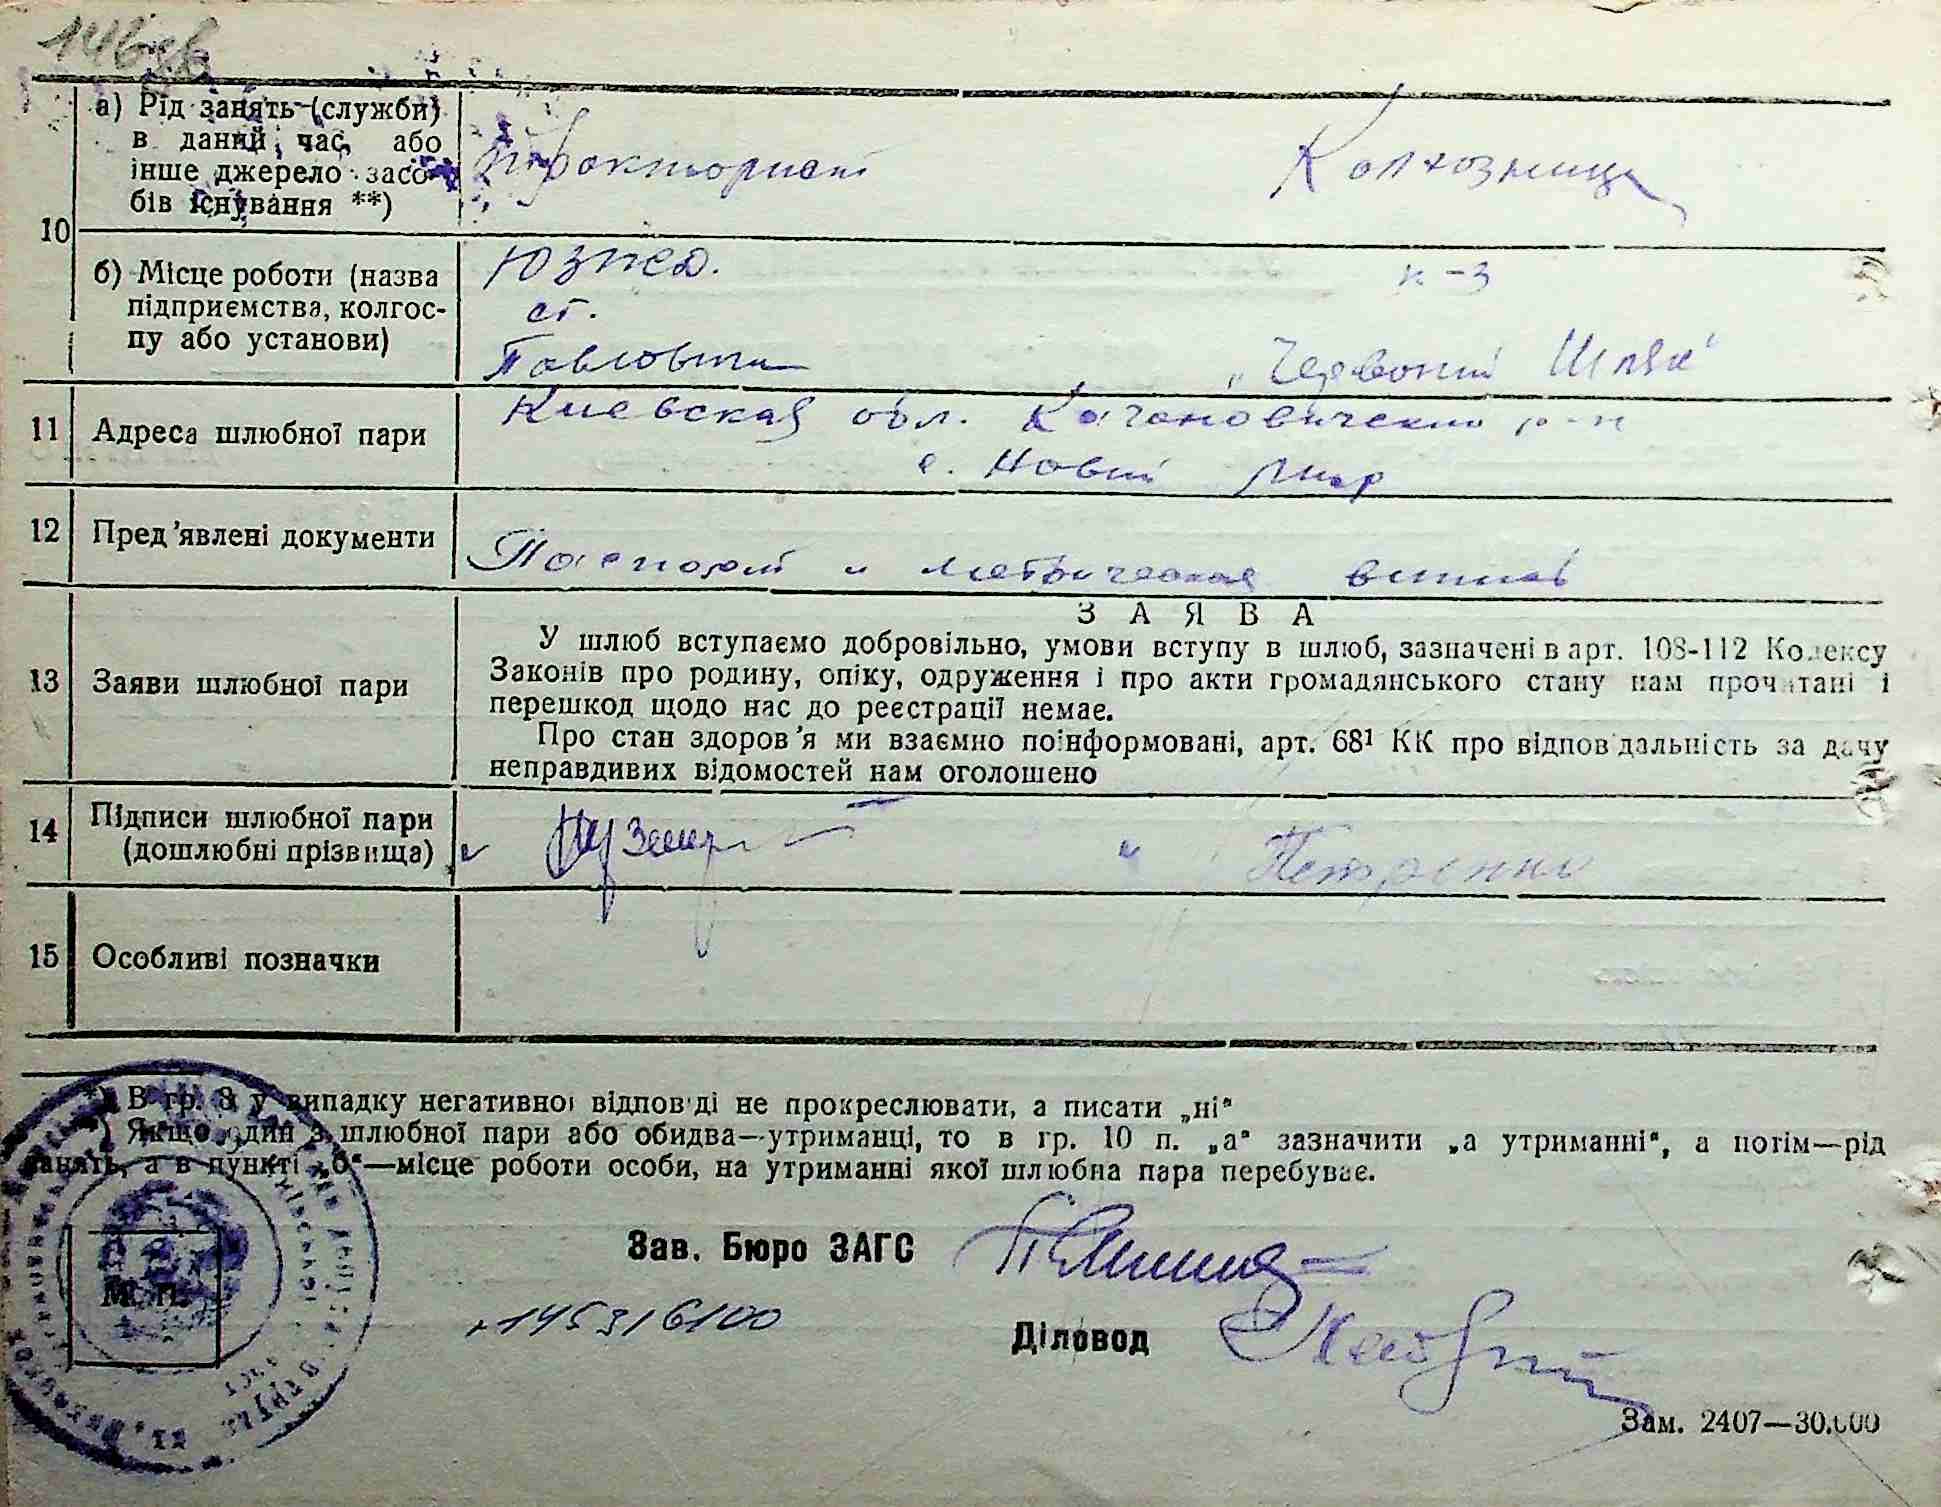 10
а) Рід занять (служби)
в даний час, або
інше джерело засо-
бів існування **)
Тракторист
Колхозница
б) Місце роботи (назва
підприємства, колгос-
пу або установи)
ст.
к-з
„Червоний Шлях"
11 Адреса шлюбної пари
Киевская обл. Кагановический р-н
с. Новий Мир
12 Пред'явлені документи
Паспорт и метрическая
13 Заяви шлюбної пари
ЗАЯВА
У шлюб вступаємо добровільно, умови вступу в шлюб, зазначені в арт. 108-112 Кодексу
Законів про родину, опіку, одруження і про акти громадянського стану нам прочитані і
перешкод щодо нас до реєстрації немає.
Про стан здоров'я ми взаємно поінформовані, арт. 68¹ КК про відповідальність за дачу
неправдивих відомостей нам оголошено
14 Підписи шлюбної пари
(дошлюбні прізвища)
Петренко
15 Особливі позначки
*) В гр. 3 у випадку негативної відповіді не прокреслювати, а писати „ні"
**) Якщо один з шлюбної пари або обидва—утриманці, то в гр. 10 п. „а" зазначити „а утриманні", а потім—рід
занять, а в пункті „б"—місце роботи особи, на утриманні якої шлюбна пара перебуває.
Зав. Бюро ЗАГС
М. П.
Діловод
Зам. 2407—30.000